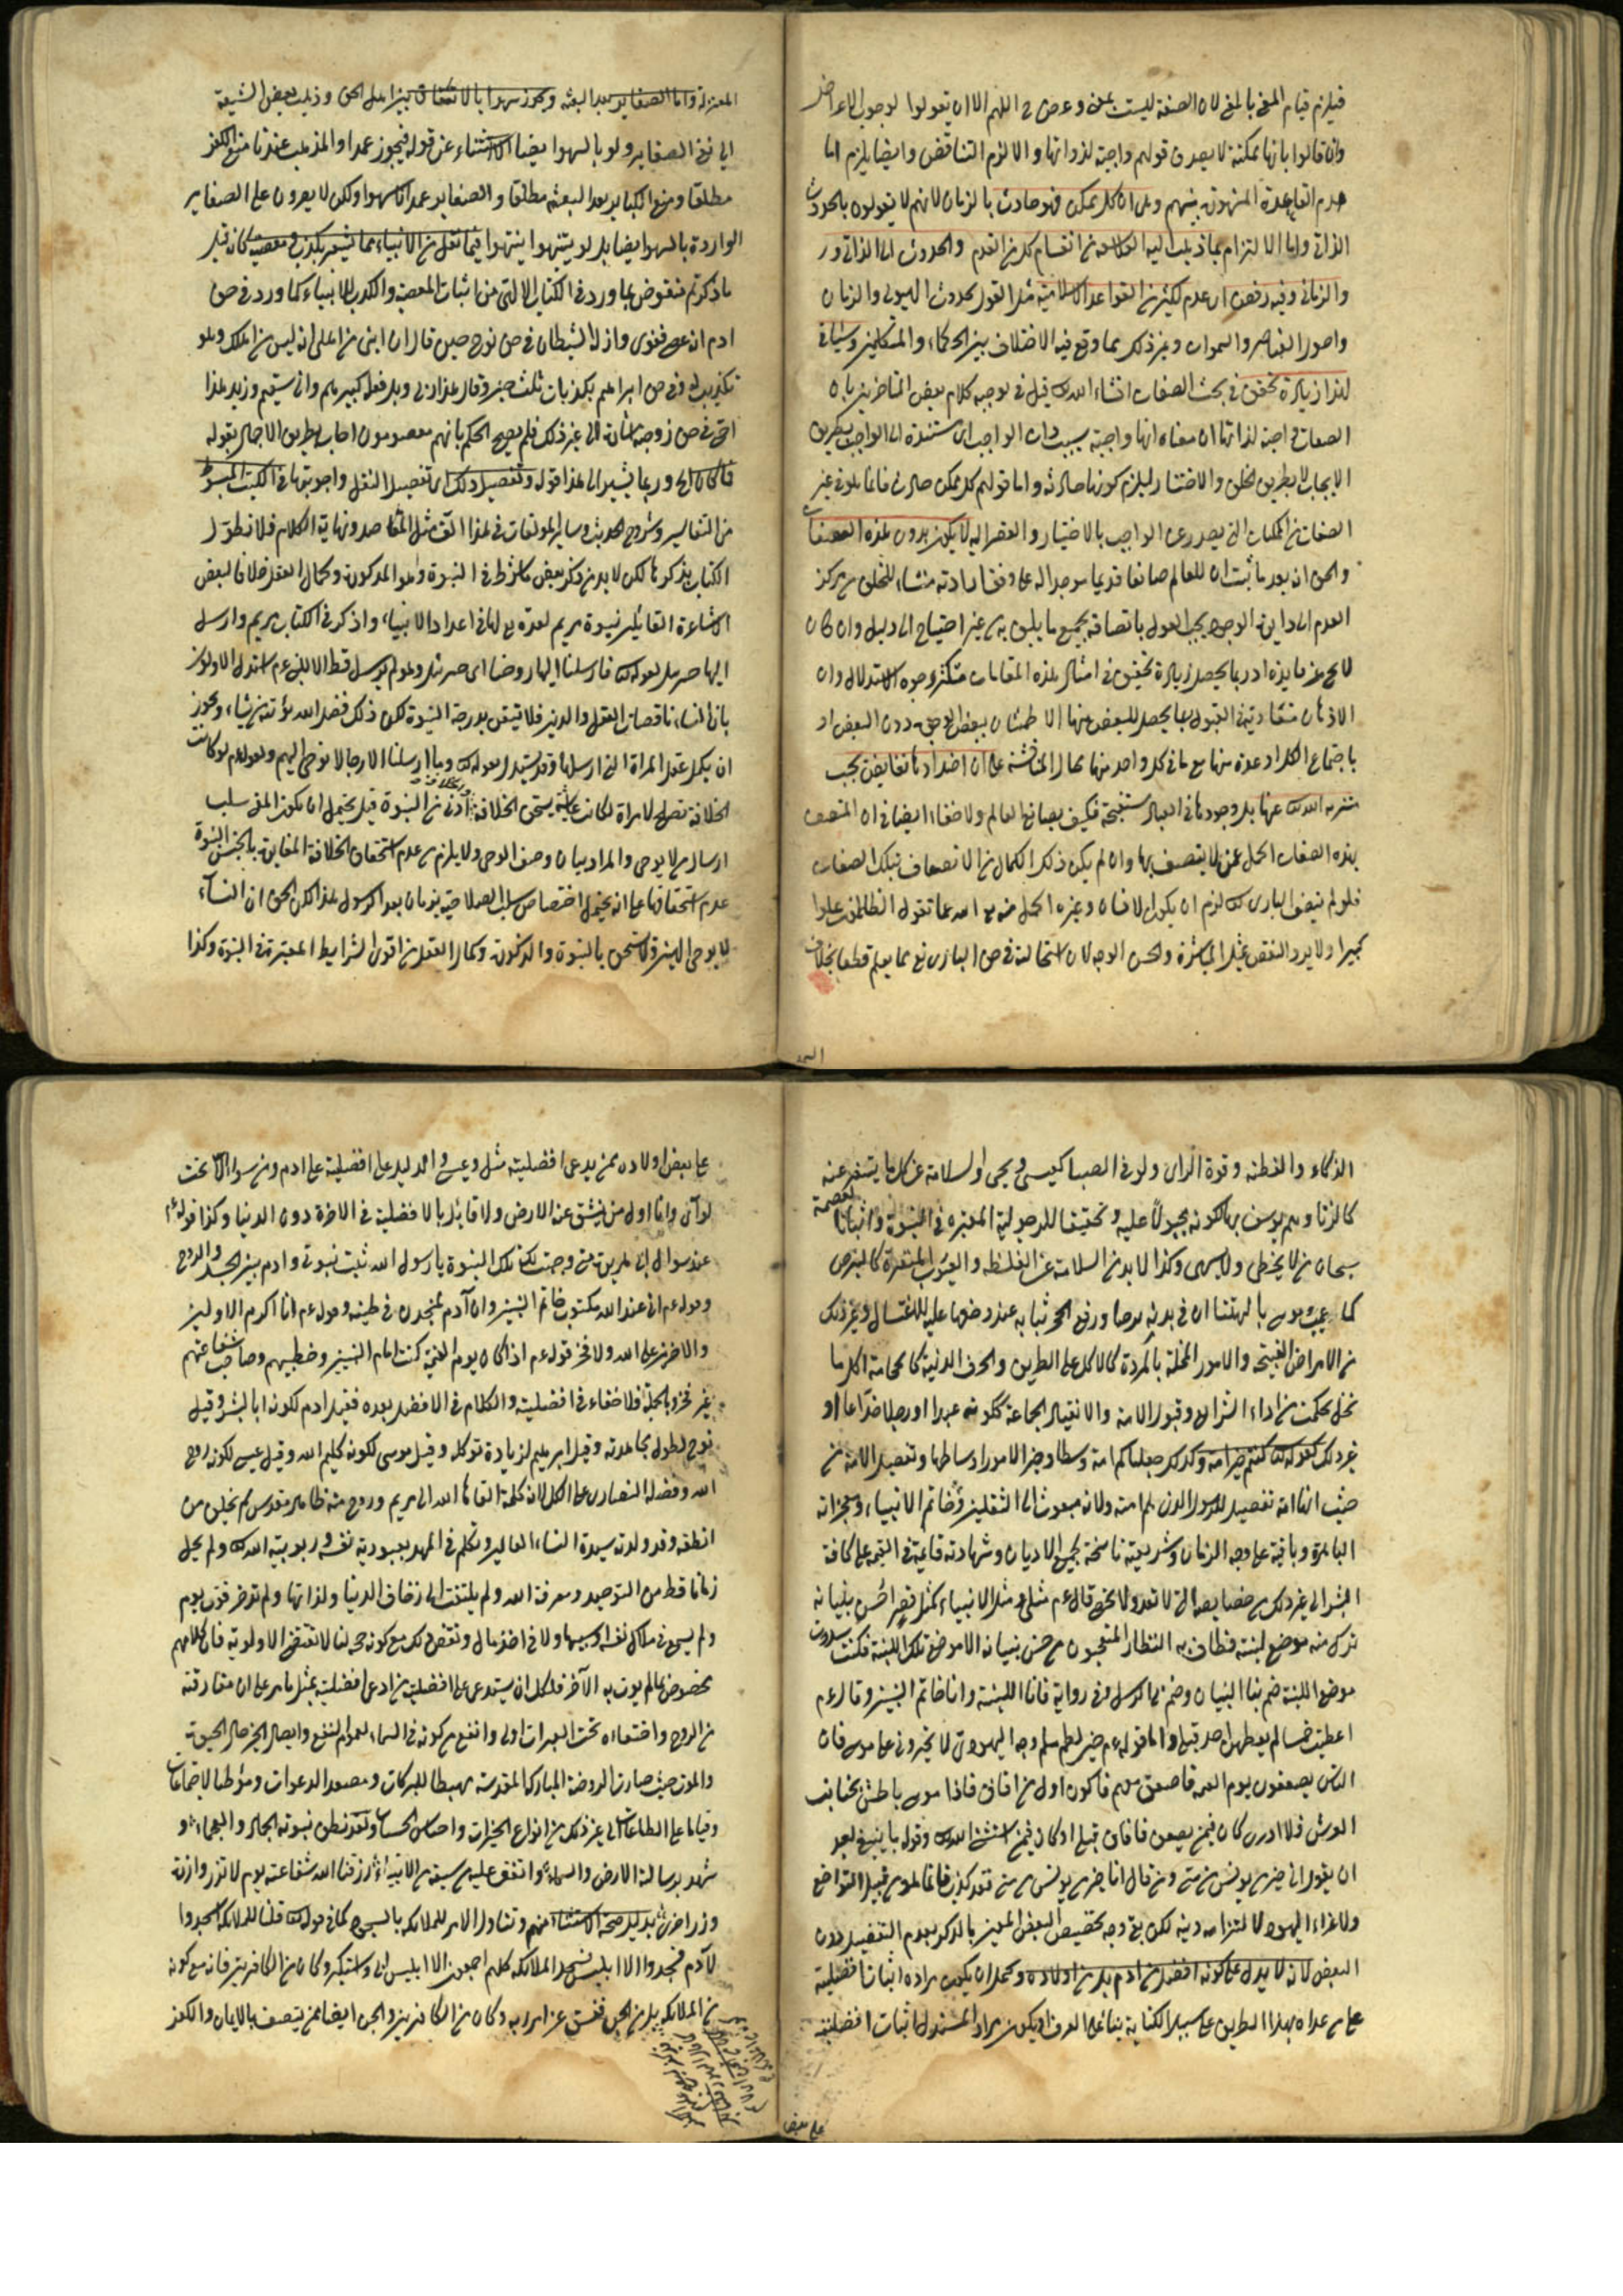 فيلزم قيام المعنى بالمعنى لان الصفة ليست بعين وعرض اللهم الا ان يقولوا لوجوب
وان قالوا بانها ممكنة لا يصدق قولهم واجبة لذواتها والا لزم التناقض وايضا يلزم اما
هدم القاعدة المشهورة بينهم وهى ان كل ممكن فهو حادث بالزمان لانهم لا يقولون بالحدوث
الذاتي واما الالتزام بما ذهب اليه الفلاسفة من انقسام كل من القدم والحدوث الى الذاتي
والزماني وفيه رفض اى عدم لكثير من القواعد الاسلامية مثل القول بحدوث الهيولى والزمان
وصور العناصر والسموات وغير ذلك مما وقع فيه الاختلاف بين الحكماء والمتكلمين وسياتى
لهذا زيادة تحقيق في بحث الصفات انشاء الله تع قيل في توجيه كلام بعض المتاخرين بان
الصفات واجبة لذاتها ان معناه انها واجبة بسبب ذات الواجب اى مستندة الى الواجب بطريق
الايجاب لا بطريق الخلق والاختيار ليلزم كونها حادثة واما قولهم كل ممكن حادث فانما يكون في غير
الصفات من الممكنات التي يصدر عن الواجب بالاختيار والقصد اليه لا يكون بدون هذه الصفات
والحق ان بعد ما ثبت ان للعالم صانعا قديما موجدا له على وفق ارادته منشاء للخلق من مركز
العدم الى دايرة الوجود يجب القول باتصافه بجميع ما يليق به من غير احتياج الى دليل وان كان
لا يخ عن فايدة اذ ربما يحصل زيادة تحقيق في امثال هذه المقامات بتكثر وجوه الاستدلال وان
الاذهان متفاوتة في القبول ربما يحصل للبعض منها الاطمئنان ببعض الوجوه دون البعض او
باجتماع الكل او عدة منها مع ما في كل واحد منها مجال المناقشة على ان اضدادها نقايص يجب
تنزيه الله تع عنها بل وجودها في العباد مستقبحة فكيف بصانع العالم ولا خفاء ايضا في ان المتصف
بهذه الصفات اكمل عمن لا يتصف بها وان لم يكن ذلك الكمال من الاتصاف بتلك الصفات
فلو لم يتصف البارى تع لزم ان يكون الانسان وغيره اكمل منه تع الله عما تقول الظالمون علوا
كبيرا ولا يرد النقض بمثل المباشرة والحسن الوجه لان استحالته في حق البارى تع مما يعلم قطعا بخلاف
المعتزلة واما الصغاير بعد البعثة وتجوز سهوا بالاتفاق بين اهل الحق وذهب بعض الشيعة
الى نفى الصغاير ولو بالسهو ايضا الاستثناء عن قوله فيجوز عمدا والمذهب عندنا منع الكفر
مطلقا ومنع الكباير بعد البعثة مطلقا والصغاير عمدا لا سهوا ولكن لا يصرون على الصغاير
الواردة بالسهو ايضا بل لو ينبهوا ينتهوا فما نقل من الانبياء مما يشعر بكذب او معصية كانه قيل
ما ذكرتم منقوض بما ورد في الكتاب الالهى من اثبات المعصية والكذب للانبياء كما ورد في حق
ادم انه عصى فغوى وازله الشيطان في حق نوح حين قال ان ابنى من اهلى انه ليس من اهلك وهو
تكذيب له وفي حق ابراهيم بكذبات ثلث حين وقال هذا ربى وبل فعله كبيرهم وانى سقيم وزيد هذا
اختى في حق زوجته سارة الى غير ذلك فلم يصح الحكم بانهم معصومون اجاب بطريق الاجمال بقوله
فما كان اه وربما يشير الى هذا قوله وتفصيل ذلك اى تفصيل النقل واجوبتها في الكتب المبسوط
من التفاسير وشروح الحديث وساير المولفات في هذا الفن مثل المقاصد ونهاية الكلام فلا نطول
الكتاب بذكرها لكن لا بد من ذكر بعض ما شرط في النبوة وهو الذكورة وكمال العقل خلافا لبعض
الاشاعرة القائلين بنبوة مريم لعده تع لها في اعداد الانبياء واذكر في الكتاب مريم وارسل
اليها جبريل لقوله تع فارسلنا اليها روحنا اى جبريل وهو لم يرسل قط الا للنبى عم استدل الاولون
بان النساء ناقصات العقل والدين فلا تليقن بدرجة النبوة لكن ذلك فضل الله يؤتيه من يشاء ويجوز
ان يكمل عقل المراة التي ارسلها وقد يستدل بقوله تع وما ارسلنا الا رجالا نوحى اليهم وقوله عم لو كانت
الخلافة تصلح لامراة لكانت عايشة يستحق الخلافة ادنى من النبوة قيل يحتمل ان يكون المنفى سلب
ارسال من لا يوحى والمراد بيان وصف الوحى ولا يلزم من عدم استحقاق الخلافة المغايرة بالجنس النبوة
عدم استحقاقها على انه يحتمل اختصاص سلب الصلاحية بزمان بعد الرسول هذا لكن الحق ان النساء
لا يوحى اليهن ولا يستحق بالنبوة والذكورة وكمال العقل من اقوى الشرايط المعتبرة في النبوة وكذا
الذكاء والفطنة وقوة الراى ولو في الصبا كعيسى ويحيى او السلامة عن كل ما يتنفر عنه
كالزنا وهم يوسف بها لكونه مجبولا عليه وتحقيقا للرجولية المعتبره في النبوة واثباتا للعصمة
سبحان من لا يخطى ولا يسهى وكذا لا بد من السلامة عن الغلظة والعيوب المنفرة كالبرص
كما عيب موسى بالبهتان ان في بدنه برصا ورفع الحجر ثيابه عند وضعها عليه للاغتسال وغير ذلك
من الامراض القبيحة والامور المخلة بالمروة كالاكل على الطريق والحرف الدنية كالحجامة وكل ما
يخل بحكمت من اداء الشرايع وقبول الامة والانقياد الجماعة ككونه عبدا او رجلا خداعا او
غير ذلك كقوله تع كنتم خير امة وكذلك جعلناكم امة وسطا وخير الامور اوساطها وتفضيل الامة من
حيث انها امة تفضيل للرسول الذى هم امته ولانه مبعوث الى الثقلين وخاتم الانبياء ومعجزاته
الباهرة وباقية على وجه الزمان وشريعته ناسخة لجميع الاديان وشهادته قائمة في القيمة على كافة
البشر الى غير ذلك من خصايصه التي لا تعد ولا تحصى قال عم مثلى ومثل الانبياء كمثل قصر احسن بنيانه
ترك منه موضع لبنة فطاف به النظار المتعجبون من حسن بنيانه الا موضع تلك اللبنة فكنت سددت
موضع اللبنة ختم بنا البنيان وختم بى الرسل وفي رواية فانا اللبنة وانا خاتم النبيين وقال عم
اعطيت خمسا لم يعطهن احد قبلى واما قوله عم حين لطم مسلم وجه اليهودى لا تخيرونى على موسى فان
الناس يصعقون يوم القيمة فاصعق معهم فاكون اول من افاق فاذا موسى باطش بجانب
العرش فلا ادرى كان فيمن يصعق فافاق قبلى او كان فيمن استثنى الله تع وقوله ما ينبغى لعبد
ان يقول انى خير من يونس بن متى ومن قال انا خير من يونس بن متى فقد كذب فانما هو من قبيل التواضع
ولاغراء اليهود لالتزامه دينه لكن بقى وجه تخصيص البعض المعين بالذكر بعدم التفضيل دون
البعض لانه لا يدل على كونه افضل من ادم بل من اولاده ويحتمل ان يكون مراده اثبات افضليته
على من عداه بهذا الطريق على سبيل الكناية بناء على العرف او يكون مراد المستدل اثبات افضليته
على بعض
على بعض اولاده ممن يدعى افضليته مثل وعيسى والدليل على افضليته على ادم ومن سواه الا تحت
لوائى وانا اول من ينشق عنه الارض ولا قائل بالافضلية في الاخرة دون الدنيا وكذا قوله عم
عند سوال ابى هريرة متى وجبت لك النبوة يا رسول الله ثبت نبوتى وادم بين الجسد والروح
وقوله عم انى عند الله مكتوب خاتم النبيين وان آدم لمنجدل في طينه وقوله عم انا اكرم الاولين
والاخرين على الله ولا فخر قوله عم اذا كان يوم القيمة كنت امام النبيين وخطيبهم وصاحب شفاعتهم
غير فخر وبالجملة فلا خفاء في افضليته والكلام في الافضل بعده فقيل ادم لكونه ابا البشر وقيل
نوح لطول مجاهدته وقيل ابرهيم لزيادة توكله وقيل موسى لكونه كليم الله وقيل عيسى لكونه روح
الله وفضله النصارى على الكل لانه كلمة القاها الله الى مريم وروح منه طاهر مقدس لم يخلق من
النطفة وقد ولدته سيدة النساء العالمين وتكلم في المهد بعبودية نفسه وربوبية الله تع ولم يحل
زمانا قط من التوحيد ومعرفة الله ولم يلتفت الى زخاف الدنيا ولذاتها ولم يدخر قوت يوم
ولم يسع في هلاك نفس او سبيها ولا في اخذ مال ونقض ذلك مع كونه حجة لنا لا تقتضى الاولوية فان كلامهم
مخصوص بما لم يوت به الآخر فلكل ان يستدعى على افضلية من ادعى افضليته بمثل ما مر على ان مفارقته
من الروح واختفاءه تحت الغبراء اولى وانفع من كونه في السماء لعموم النفع وايصال الخير حال الحيوة
والموت حيث صارت الروضة المباركة المقدسة مهبطا للبركات ومصعد الدعوات وموطنا لاجتماعات
وقياما على الطاعات الى غير ذلك من انواع الخيرات واحصاء الحسنات ولقد نطق بنبوته الجماد والبهماء و
شهد برسالته الارض والسماء واتفق عليه من سبقه من الانبياء رزقنا الله شفاعته يوم لا تزر وازرة
وزر اخرى بدليل صحة الاستثناء منهم وتناول الامر للملائكة بالسجود كما في قوله تع قلنا للملائكة اسجدوا
لآدم فسجدوا الا ابليس فسجد الملائكة كلهم اجمعون الا ابليس ابى واستكبر وكان من الكافرين فانه مع كونه
من الملائكة بل من الجن ففسق عن امر ربه وكان من الكافرين والجن ايضا ممن يتصف بالايمان والكفر